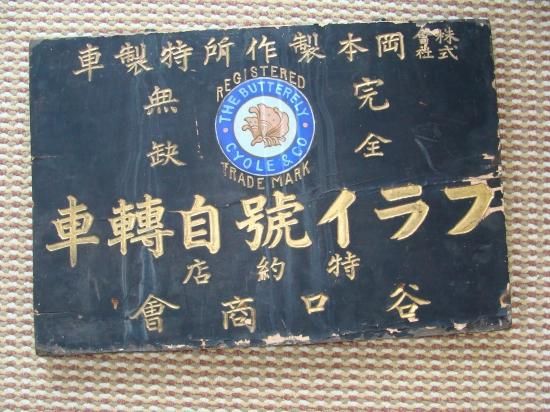 株式會社岡本製作所特製車
完全無缺
REGISTERED
THE BUTTERELY
CYOLE & CO
TRADE MARK
フライ號自轉車
特約店
谷口商會